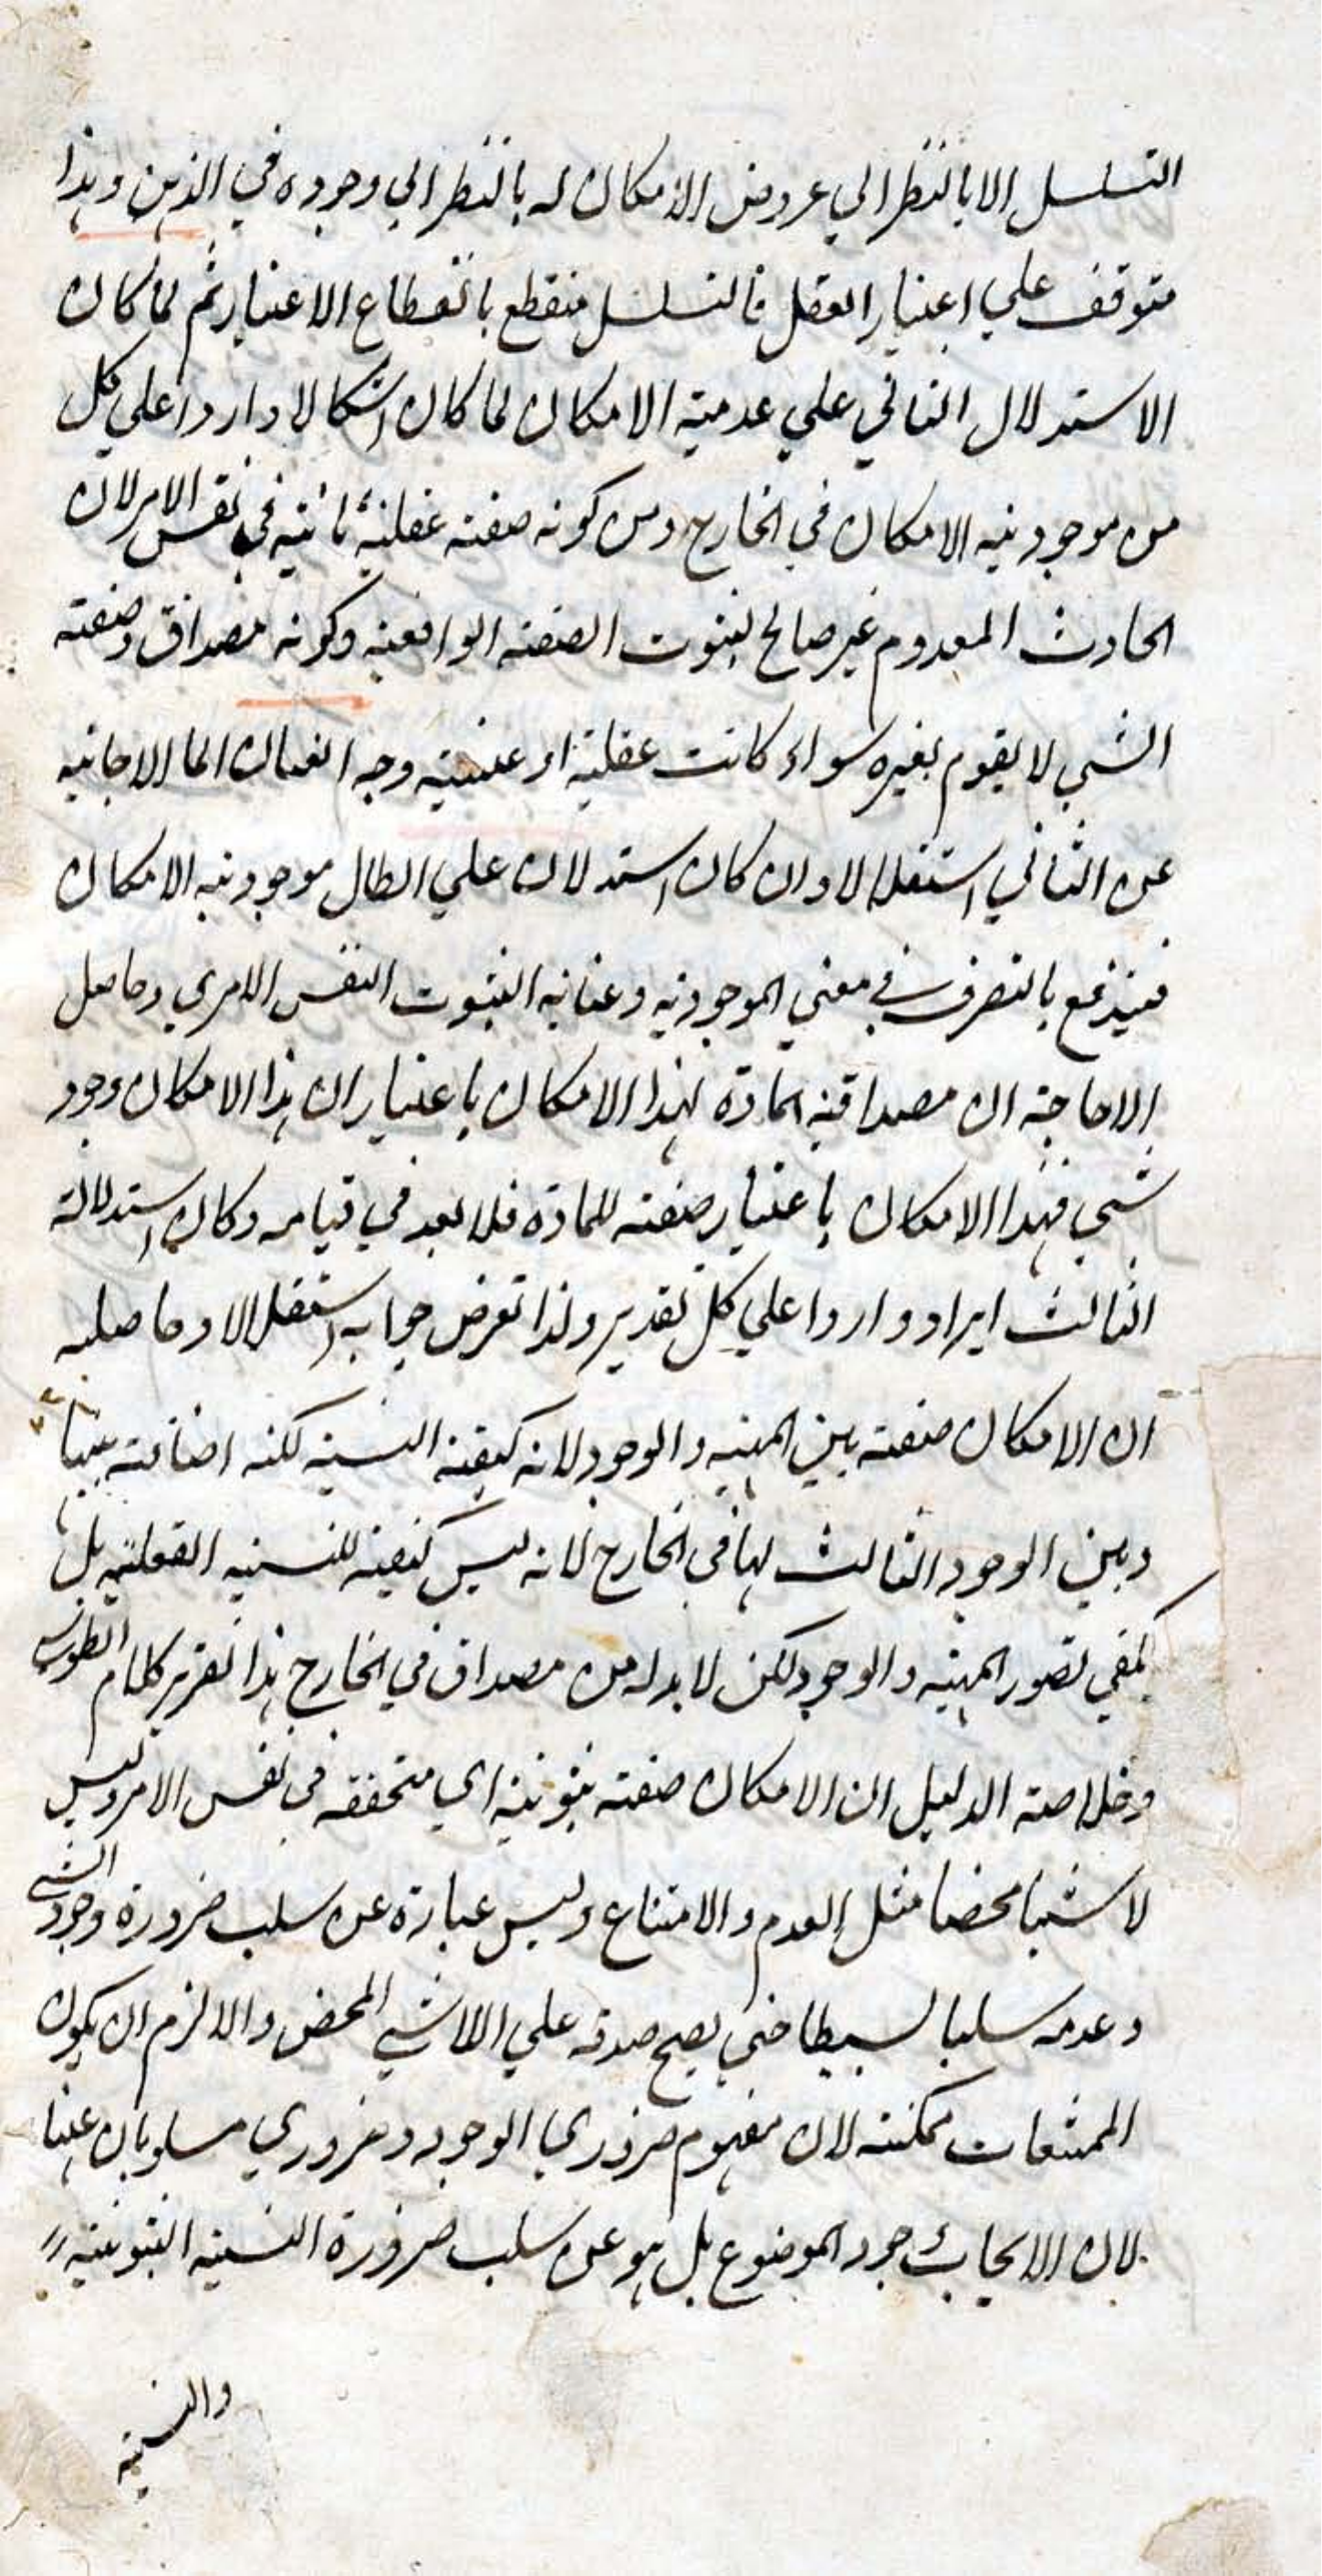 التسلسل الا بالنظر الي عروض الامكان له بالنظر الي وجوده في الذهن وهذا
متوقف علي اعتبار العقل فالتسلسل منقطع بانقطاع الاعتبار ثم لما كان
الاستدلال الثاني علي عدمية الامكان لما كان اشكالا واردا علي كل
من موجودية الامكان في الخارج ومن كونه صفته عقلية ثابتية في نفس الامر لان
الحادث المعدوم غير صالح لثبوت الصفته الواقعية وكونه مصداق وصفته
الشي لا يقوم بغيره سواء كانت عقلية او عينية وجه العنان الي الاجابة
عن الثاني استقلالا وان كان استدلان علي ابطال موجودية الامكان
فيندفع بالتصرف في معني الموجودية وعناية الثبوت النفس الامري وحاصل
الاجابة ان مصداقية المادة لهذا الامكان باعتبار ان هذا الامكان وجود
شي فهذا الامكان باعتبار صفته للمادة فلا بعد في قيامه وكان استدلالة
الثالث ايراد واردا علي كل تقدير ولذا تعرض جوابه استقلالا وحاصله
ان الامكان صفته بين المهية والوجود لانه كيفية النسبة لكنه اضافته بينها
وبين الوجود الثالث لها في الخارج لانه ليس كيفية للنسبة الفعلية بل
يكفي تصور المهية والوجود لكن لا بد له من مصداق في الخارج هذا تقرير كلام الطوسي
وخلاصة الدليل ان الامكان صفته ثبوتية اي متحققه في نفس الامر وليس
لا شيا محضا مثل العدم والامتناع وليس عبارة عن سلب ضرورة وجود الشي
وعدمه سلبا بسيطا حتي يصح صدقه علي اللاشي المحض والا لزم ان يكون
الممتنعات ممكنته لان مفهوم ضروري الوجود وضروري مسلوبان عنها
لان الايجاب وجود الموضوع بل هو عن سلب ضرورة النسبة الثبوتية
والنسبة